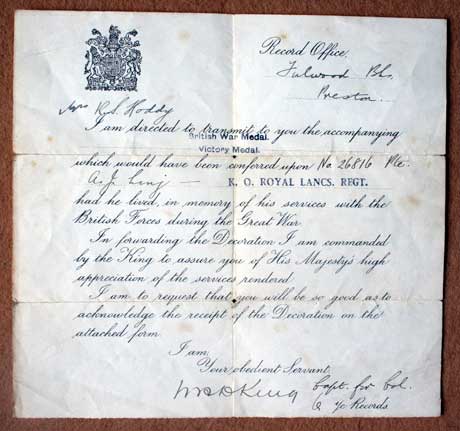 Record Office,
Fulwood Bks.
Preston.
Mrs R.S. Hoddy
I am directed to transmit to you the accompanying
British War Medal.
Victory Medal.
which would have been conferred upon No 26816 Pte.
A.J. K. O. ROYAL LANCS. REGT.
had he lived, in memory of his services with the
British Forces during the Great War.
In forwarding the Decoration I am commanded
by the King to assure you of His Majesty's high
appreciation of the services rendered.
I am to request that you will be so good as to
acknowledge the receipt of the Decoration on the
attached form.
I am,
Your obedient Servant,
King Capt. for Col.
i/c Records